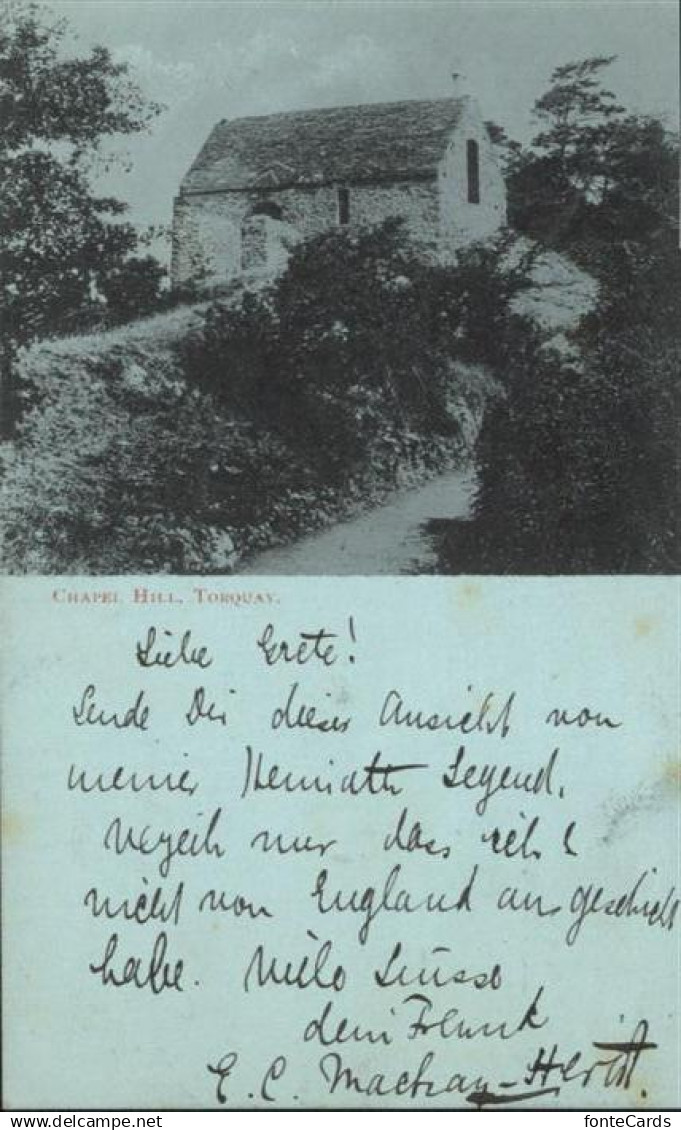 CHAPEL HILL, TORQUAY.
Liebe Grete!
Sende Dir dieses Ansicht von
meiner Heimath Legend,
verzeih nur dass ich
nicht von England aus geschickt
habe. Viele Grüsse
dein Freund
E. C. Mackay-Herbt.
fonteCards